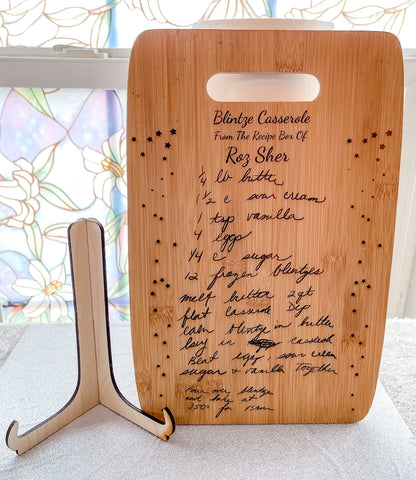 Blintze Casserole
From The Recipe Box Of
Roz Sher
1/4 lb butter
1 1/2 c sour cream
1 tsp vanilla
4 eggs
1/4 c sugar
12 frozen blintzes
melt butter 2qt
flat casserole Dip
each blintz in butter
lay in casserole
Beat eggs, sour cream
sugar & vanilla together
Pour over blintzes
and bake at
350° for